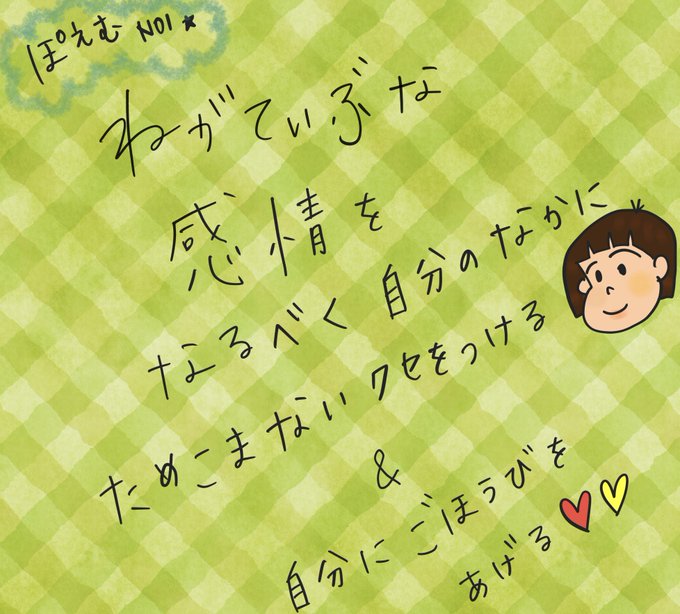 ぽえむ NO1★
ねがてぃぶな
感情を
なるべく 自分のなかに
ためこまない クセをつける
&
自分にごほうびを
あげる